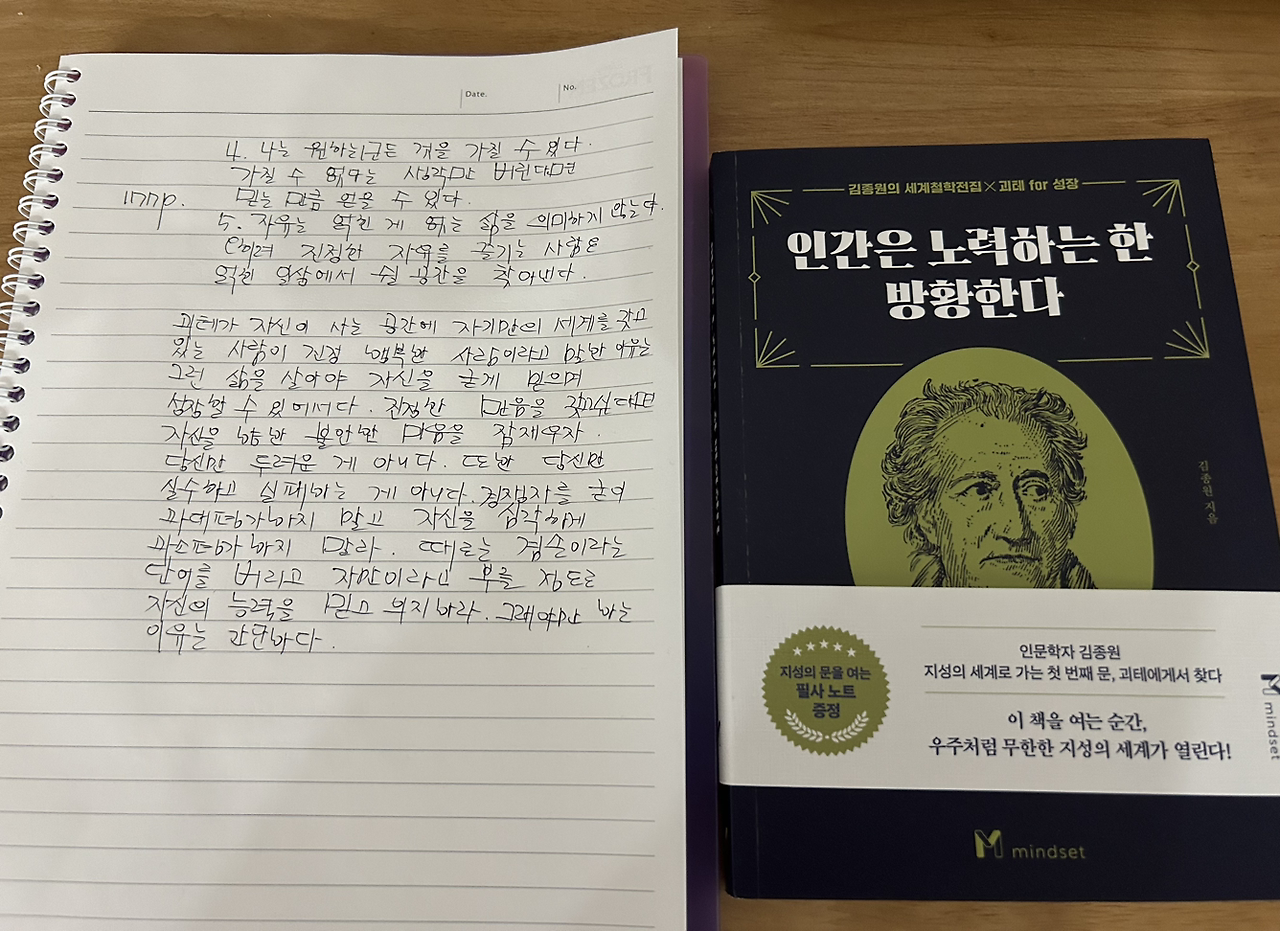 Date.
No.
FROZEN
4. 나는 원하는 모든 것을 가질 수 있다.
가질 수 없다는 생각만 버린다면
믿는 만큼 얻을 수 있다.
177p.
5. 자유는 얽힌 게 없는 삶을 의미하지 않는다.
오히려 진정한 자유를 즐기는 사람은
얽힌 일상에서 쉴 공간을 찾아낸다.
괴테가 자신이 사는 공간에 자기만의 세계를 갖고
있는 사람이 진정 행복한 사람이라고 말한 이유는
그런 삶을 살아야 자신을 굳게 믿으며
성장할 수 있어서다. 진정한 믿음을 갖고싶다면
자신을 향한 불안한 마음을 잠재우자.
당신만 두려운 게 아니다. 또한 당신만
실수하고 실패하는 게 아니다. 경쟁자를 굳이
과대평가하지 말고 자신을 심각하게
과소평가하지 말라. 때로는 겸손이라는
단어를 버리고 자만이라고 부를 정도로
자신의 능력을 믿고 의지하라. 그래야만 하는
이유는 간단하다.
김종원의 세계철학전집×괴테 for 성장
인간은 노력하는 한
방황한다
김종원 지음
지성의 문을 여는
필사 노트
증정
인문학자 김종원
지성의 세계로 가는 첫 번째 문, 괴테에게서 찾다
이 책을 여는 순간,
우주처럼 무한한 지성의 세계가 열린다!
mindset
mindset